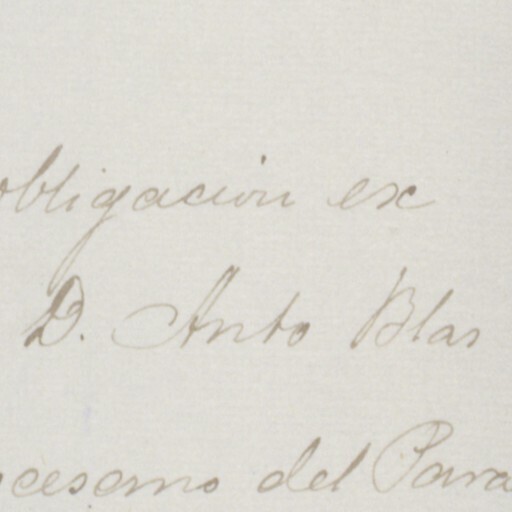 obligacion ex
D. Anto Blas
del Para